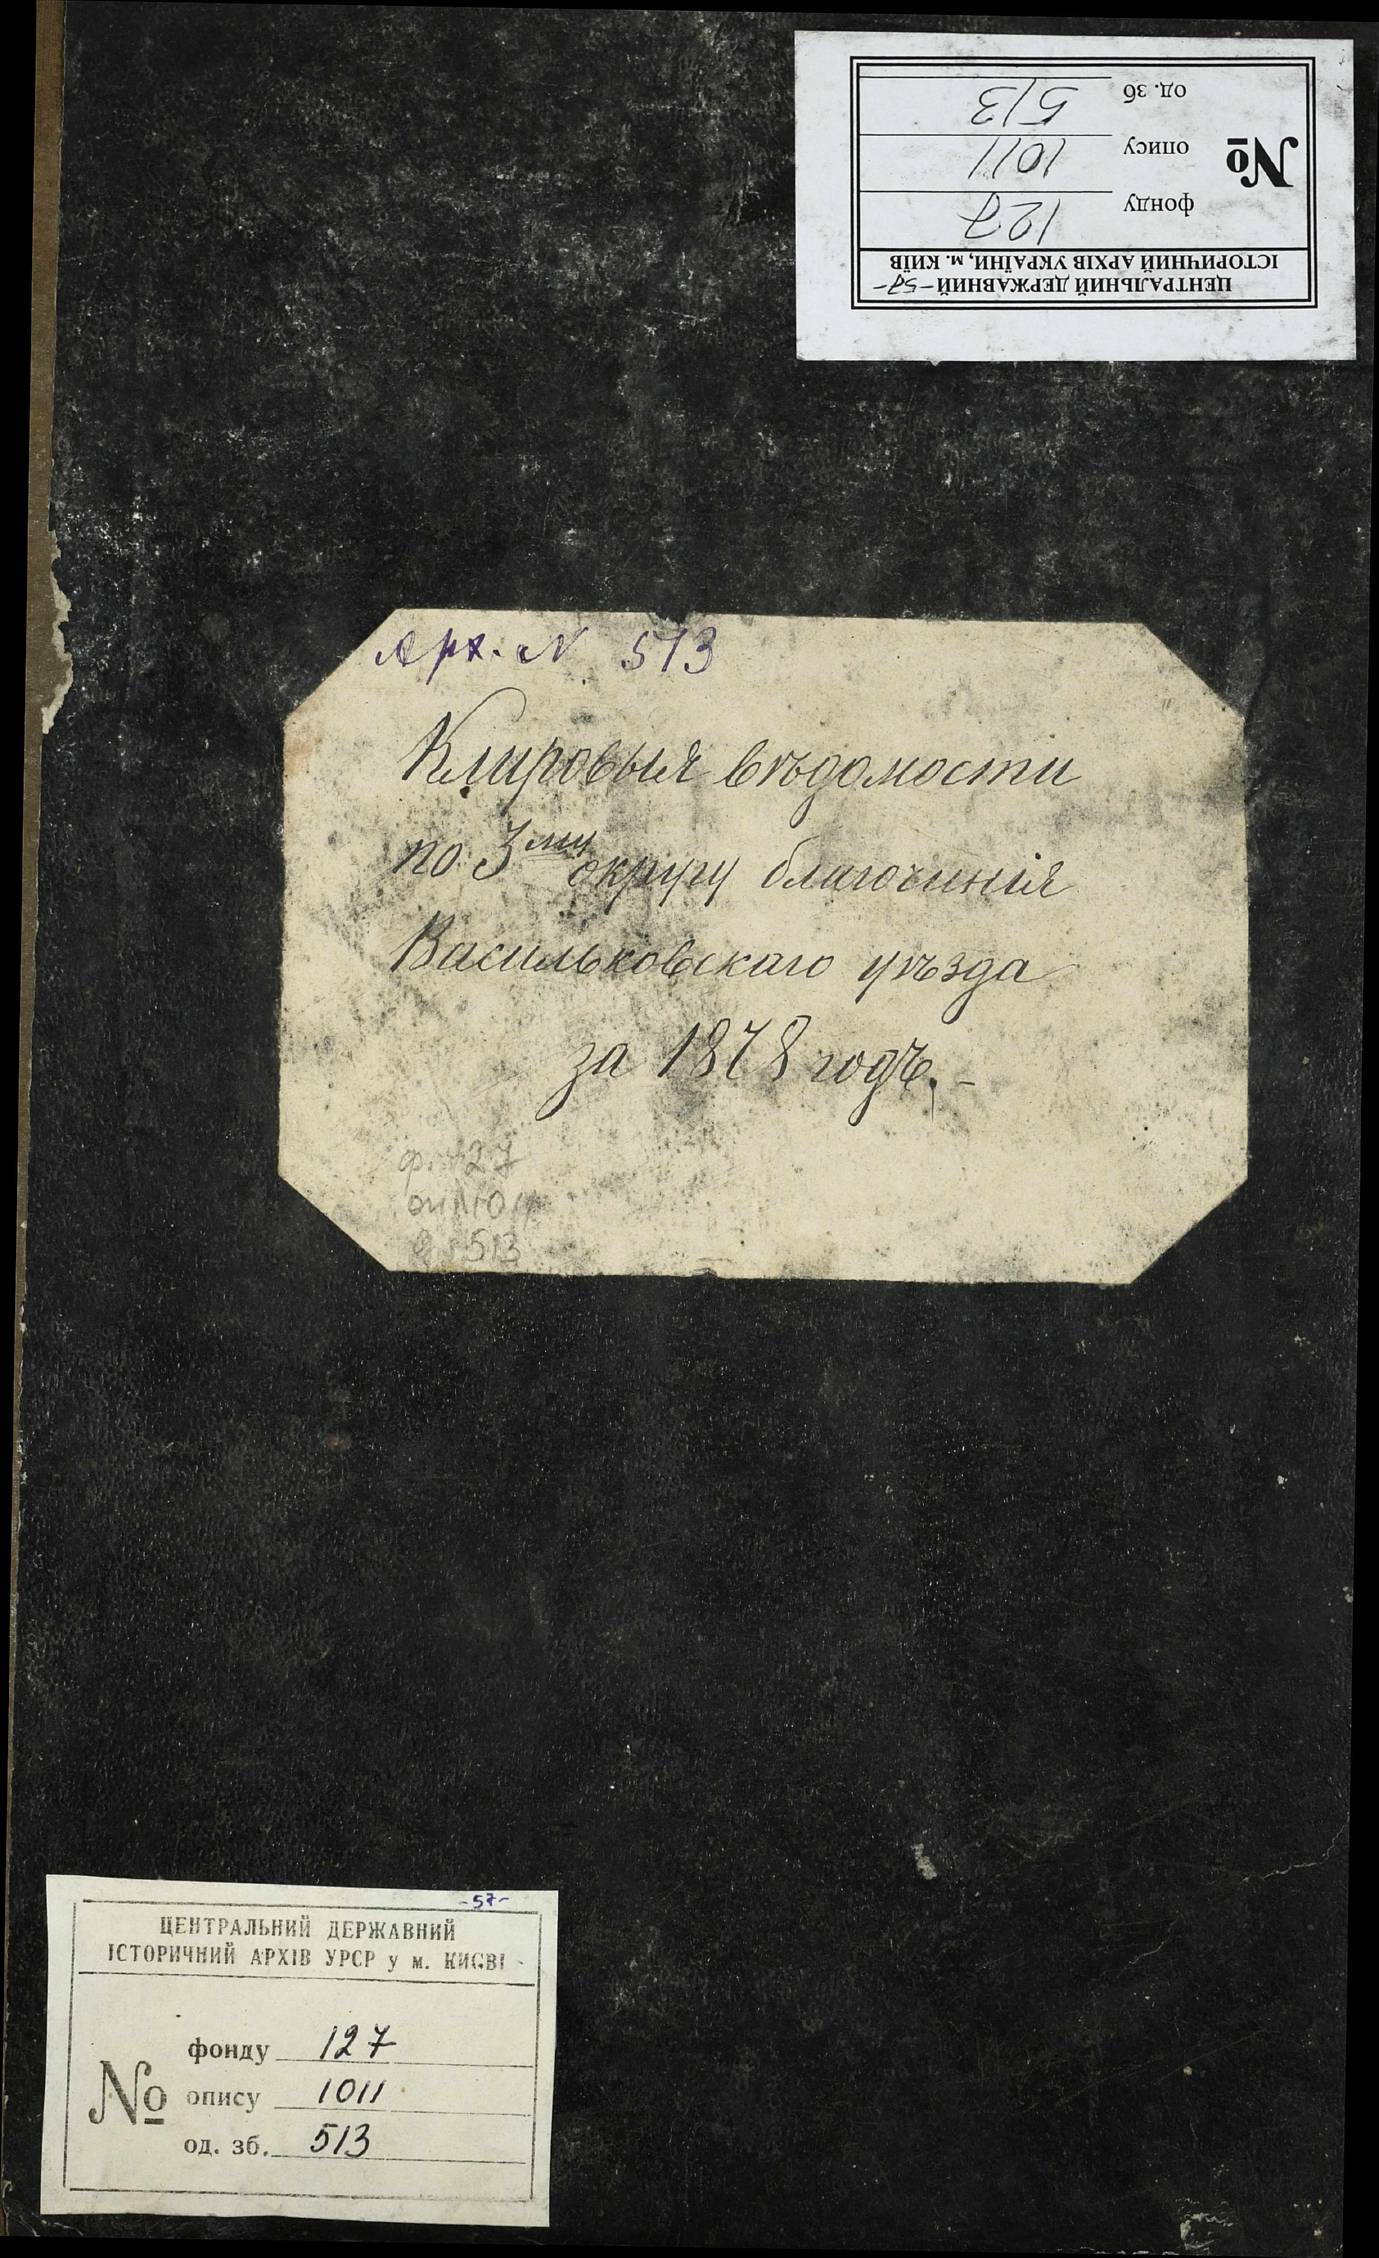 ЦЕНТРАЛЬНИЙ ДЕРЖАВНИЙ -57-
ІСТОРИЧНИЙ АРХІВ УКРАЇНИ, м. КИЇВ
№
фонду 127
опису 1011
од. зб 513
Арх. N 513
Клировыя вѣдомости
по 3му округу благочинія
Васильковскаго уѣзда
за 1878 годъ. -
ф. 127
оп 1011
513
-57-
ЦЕНТРАЛЬНИЙ ДЕРЖАВНИЙ
ІСТОРИЧНИЙ АРХІВ УРСР у м. КИЄВІ
№
фонду 127
опису 1011
од. зб. 513